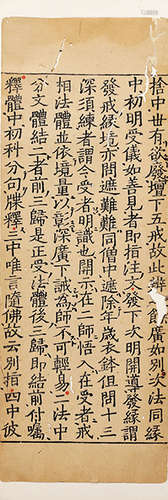 捨中世有欲發壇下五戒故此辨
飾廣如別次法同縁
中初明受儀如善見者即指注文發下次明開導發縁謂
發戒縁境亦問遮難難同僧中遮除年歲衣鉢但問十三
深須練者謂今受者明識也開示在二師悟入在受者戒
相法體並依境量以彰深廣下誡為師不可輕易二法中
分文體結二者前三歸是正受法體後三歸即結前付囑
釋體中初科分可牒釋三中唯言隨佛故云別指四中彼